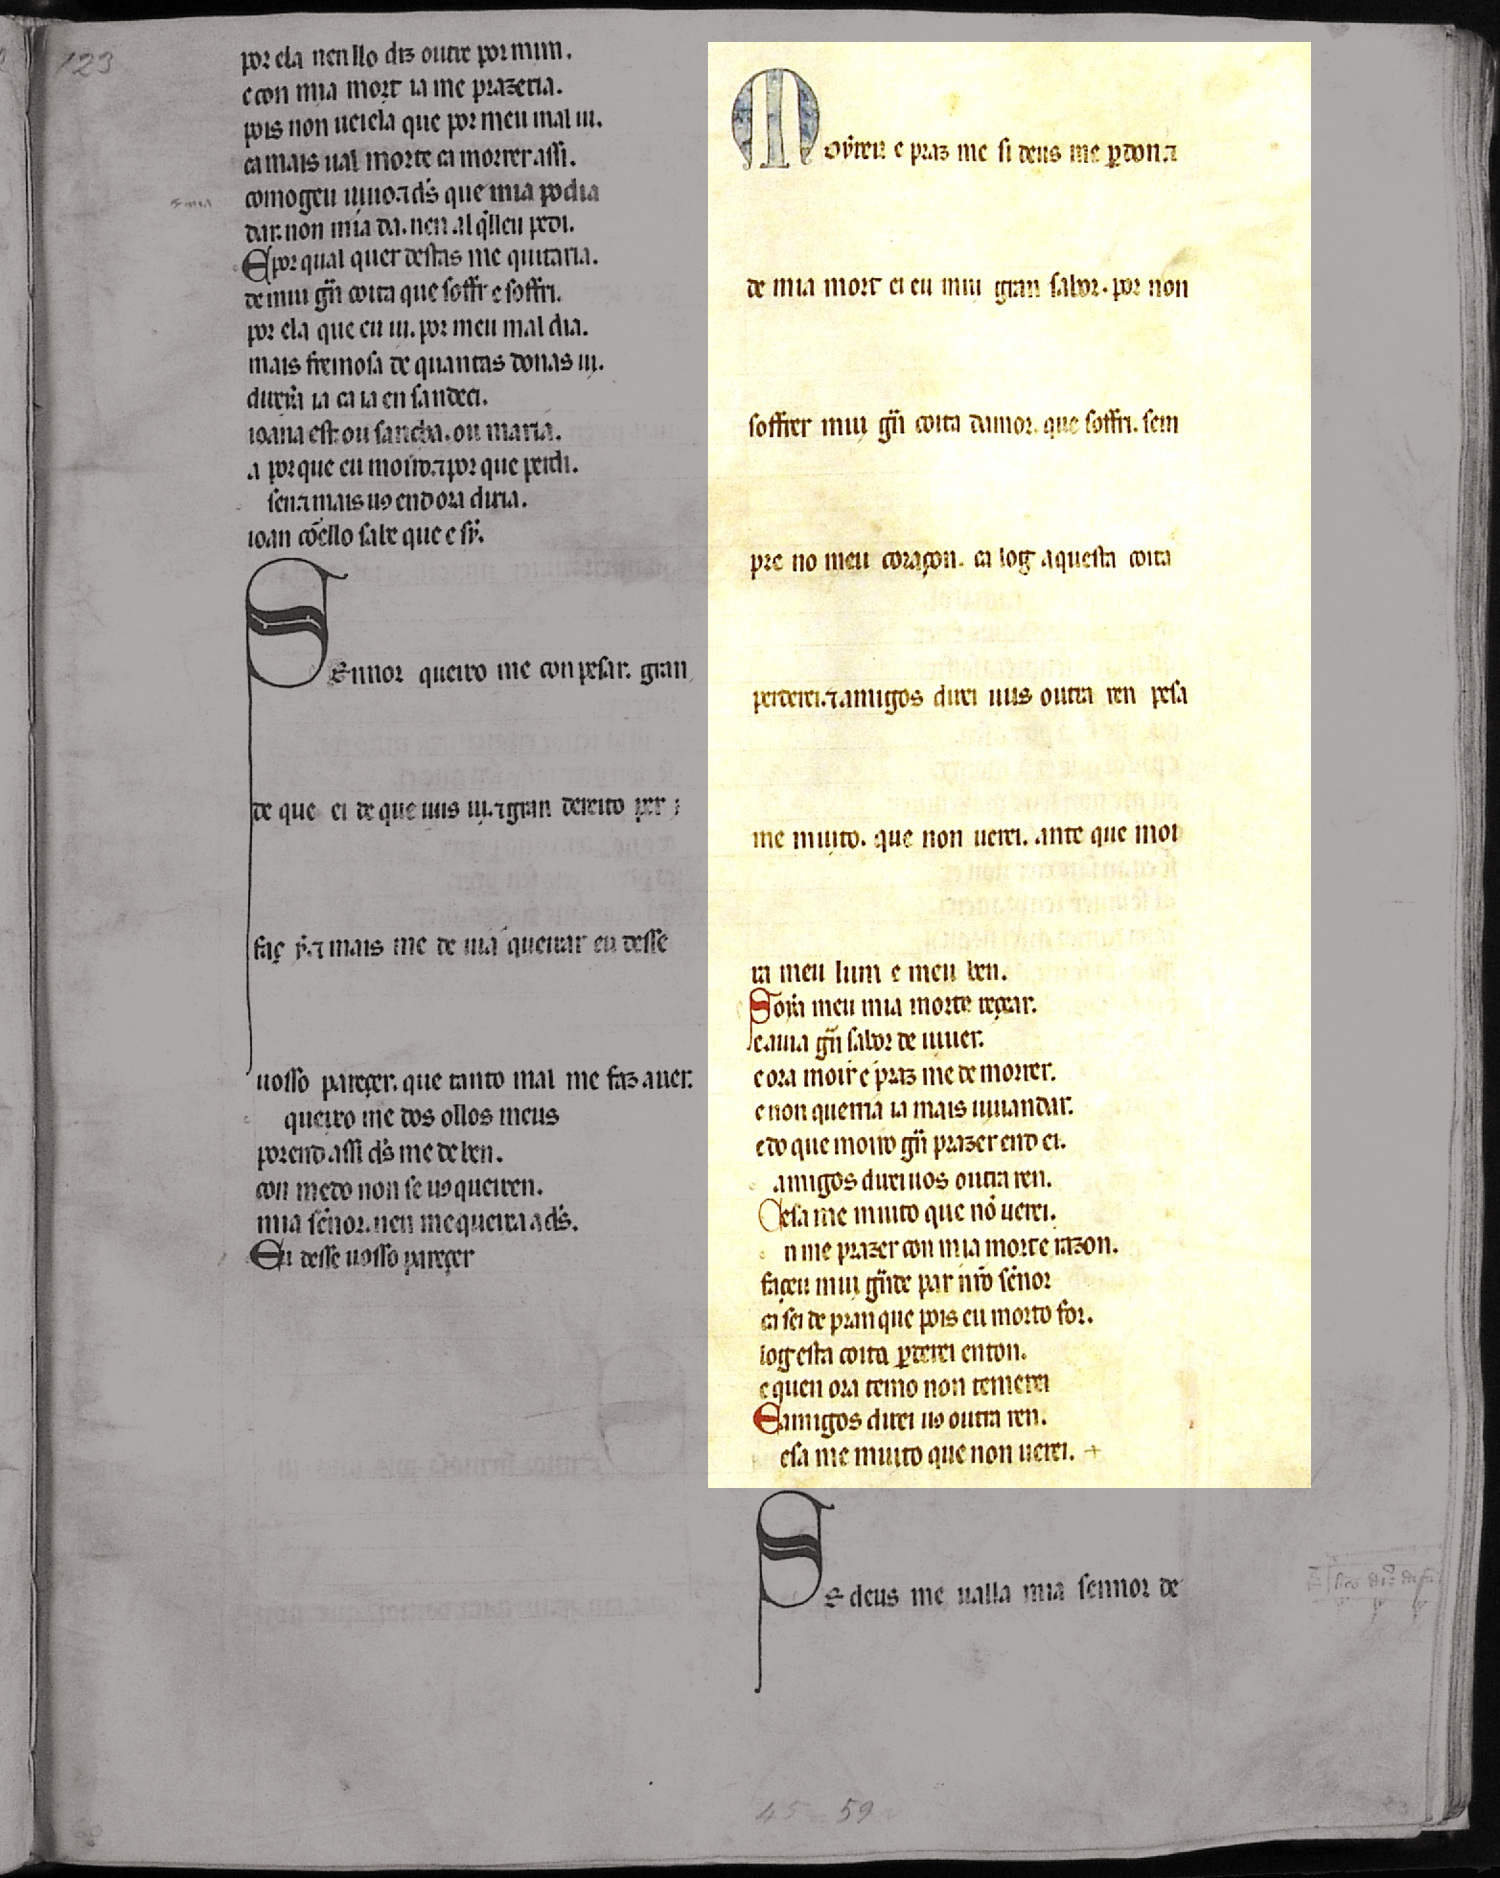 123
por ela nen llo diz outre por mim.
e con mia mort ia me prazeria.
pois non ueiela que por meu mal ui.
ca mais ual morte ca morrer assi.
comogeu uiuo. ⁊ d̅s que mia podia
dar. non mia da. nen al q̇lleu pedi.
E por qual quer destas me quitaria.
de mui gn̅ coita que soffr e soffri.
por ela que eu ui. por meu mal dia.
mais fremosa de quantas donas ui.
direi̇a ia ca ia en sandeci.
ioana est. ou sancha. ou maria.
a por que eu moiro. ⁊ por que perdi.
sen. ⁊ mais uꝯ end ora diria.
ioan cõello sabe que e sẏ.
SEnnor queixo me con pesar. gran
de que ei de que uus ui. ⁊ gran dereito per
faç ẏ. ⁊ mais me de uiȧ queixar eu desse
uosso pareçer. que tanto mal me faz auer.
queixo me dos ollos meus
porend. assi d̅s me de ben.
con medo non se uꝯ queixen.
mia sen̅or. nen me queixa a d̅s.
Eu desse uosso pareçer
Moyreu e praz me si deus me ꝑdon. ⁊
de mia mort ei eu mui gran sabor. por non
soffrer mui gn̅ coita damor. que soffri. sem
pre no meu coraçon. ca log aquesta coita
perderei. ⁊ amigos direi uus outra ren pesa
me muito. que non uerei. ante que moi
ra meu lum e meu ben.
Soẏa meu mia morte reçear.
e auia gn̅ sabor de uiuer.
e ora moir e praz me de morrer.
e non querria ia mais uiuandar.
e do que moiro gn̅ prazer end ei.
amigos direi uos outra ren.
esa me muito que nõ uerei.
n me prazer con mia morte razon.
façeu mui gn̅de par nr̅o sen̅or
ca sei de pran que pois eu morto for.
log esta coita ꝑderei enton.
e quen ora temo non temerei
E amigos direi uꝯ outra ren.
esa me muito que non uerei. +
SE deus me ualla mia sennor de
45 - 59